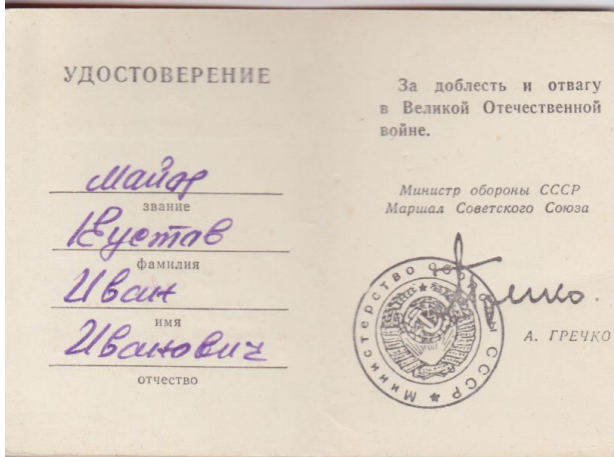 УДОСТОВЕРЕНИЕ
Майор
звание
Кустав
фамилия
Иван
имя
Иванович
отчество
За доблесть и отвагу
в Великой Отечественной
войне.
Министр обороны СССР
Маршал Советского Союза
Министерство обороны СССР
А. ГРЕЧКО